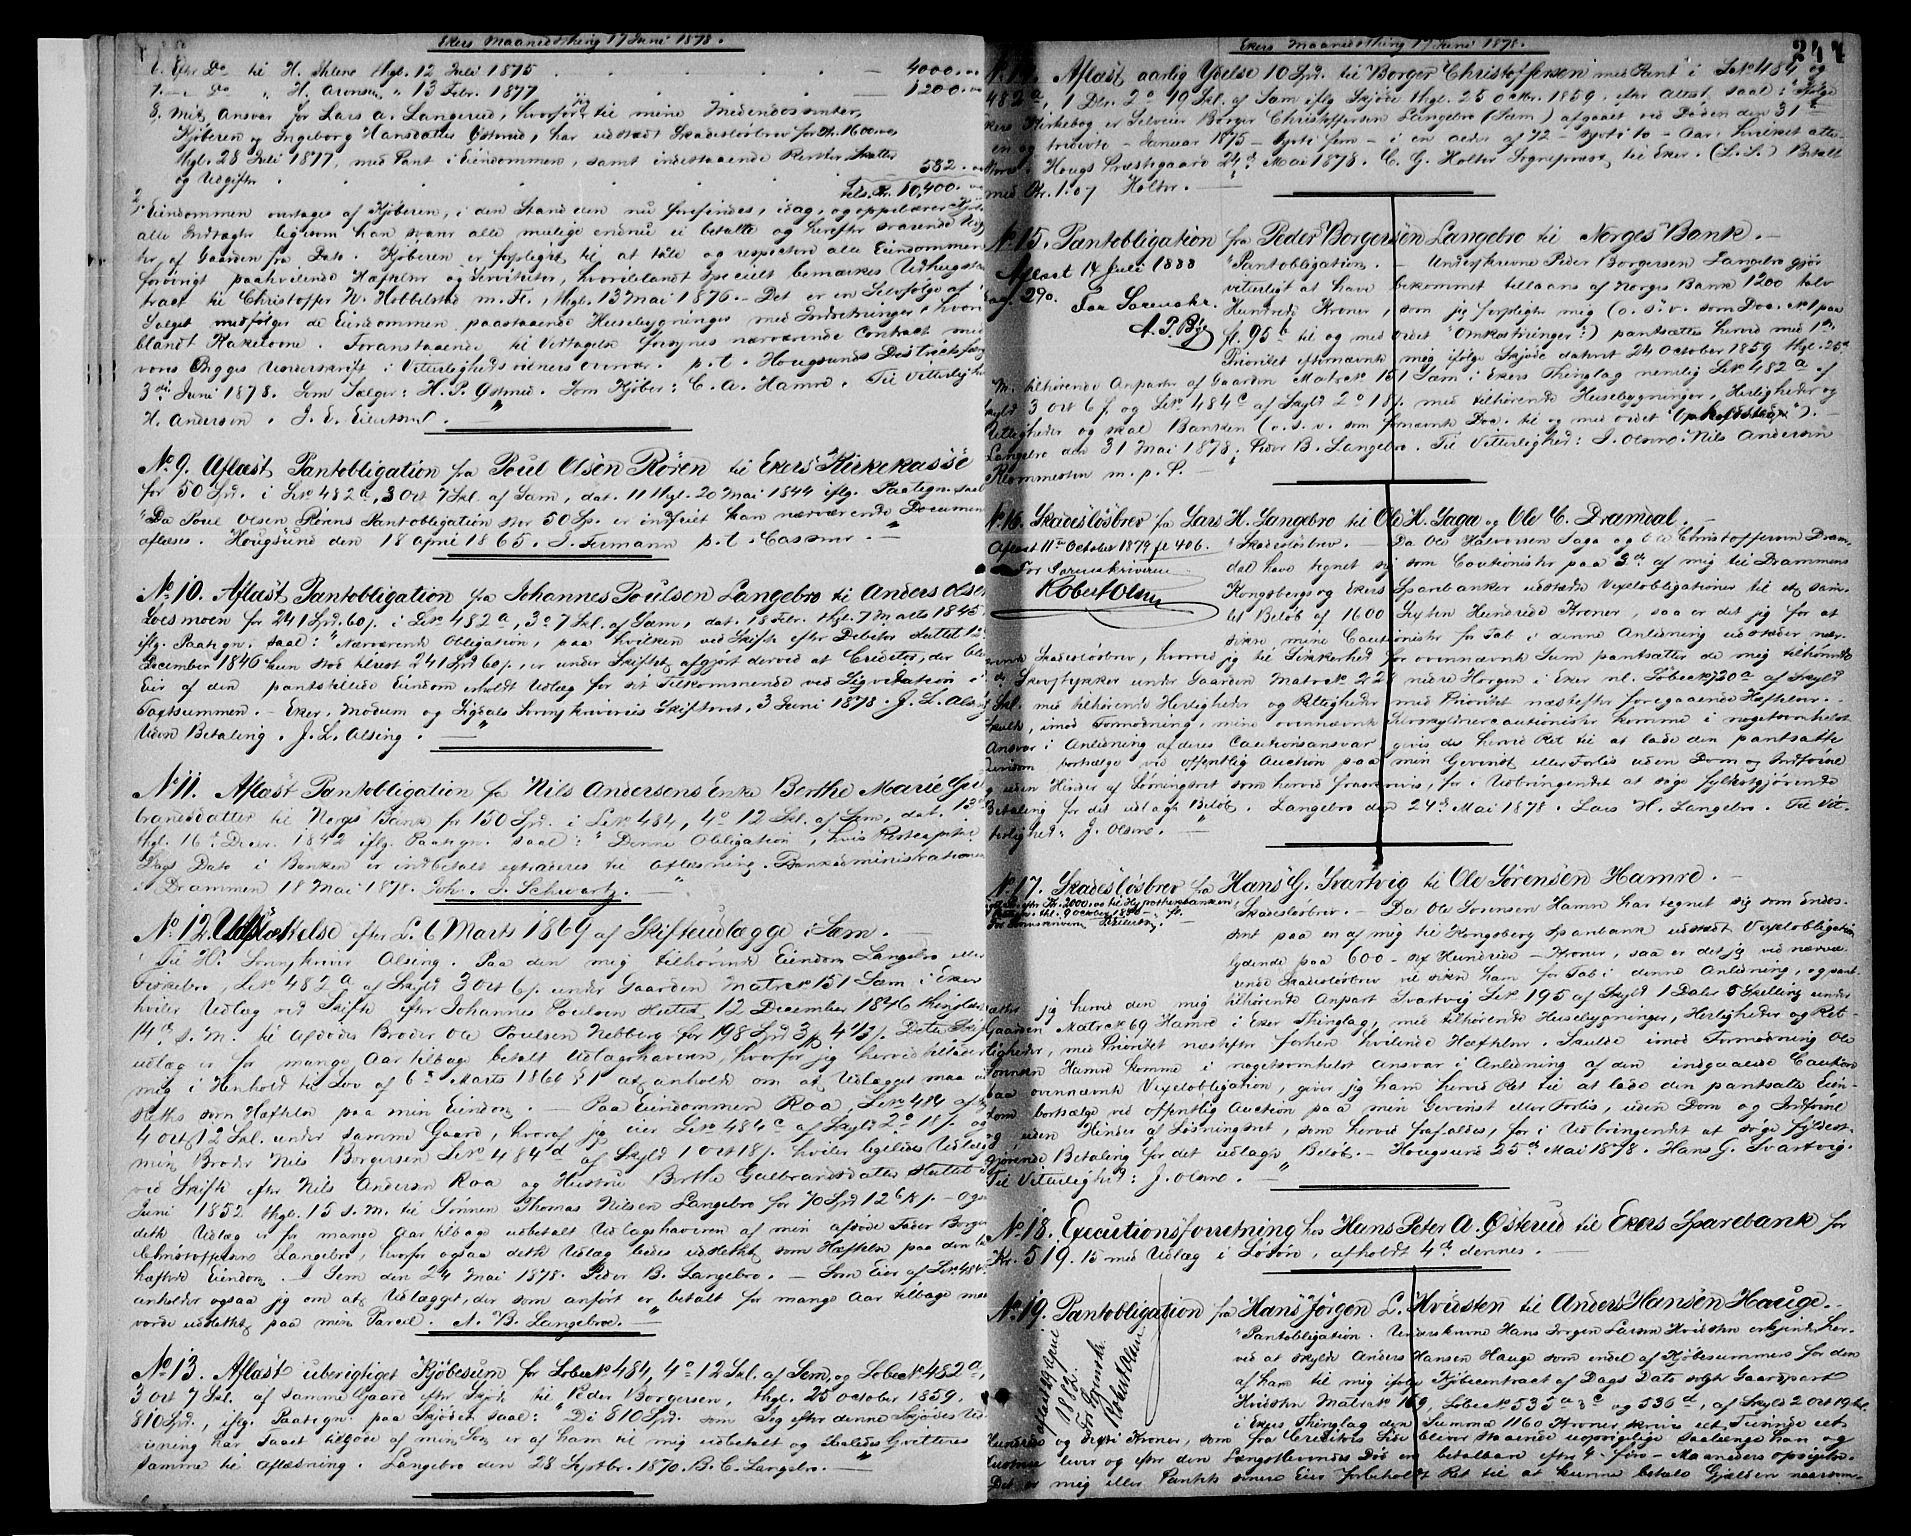 Ekers Maanedsthing 17 Juni 1878.
6. Efter Do til H. Ahlene thgl. 12 Juli 1875 4000.
7. – Do " H. Aronsen " 13 Febr. 1877 1200.
8. Mit Ansvar for Lars A. Langerud, hvorfor til mine Medendossenter,
Kjøberen og Ingeborg Hansdatter Østerud, har udstedt Skadesløsbrev for Kr. 1600
thgl. 28 Juli 1877, med Pant i Eiendommen, samt indestaaende Renter, Skatter
og Udgifter 582.
Tils. Kr. 10,400.
2. Eiendommen overtages af Kjøberen, i den Stand den nu forefindes, idag, og oppebærer
alle Indtægter ligesom han svarer alle mulige endnu ei betalte og herefter svarende
af Gaarden fra Dato. Kjøberen er forpligtet til at taale og respectere alle Eiendommen
forøvrigt paahvilende Hæftelser og Servituter, hvoriblandt specielt bemærkes Udhugst
tract til Christoffer N. Hobbelstad m. fl., thgl. 13 Mai 1876. – Det er en Selvfølge af
Salget medfølger de Eiendommen paastaaende Husebygninger med Indretninger, hvori
blandt Kakelovne. Foranstaaende til Vedtagelse forsynes nærværende Contract med
vores Begges Underskrift i Vitterlighedsvidners Overvær. p. t. Hougsunds
3die Juni 1878. Som Sælger: H. P. Østerud. Som Kjøber: C. A. Hamre. Til Vitterlighed
H. Andersen. J. E. Eilertsen.
No 9. Aflæst Pantobligation fra Poul Olsen Røren til Ekers Kirkekasse
for 50 Spd. i Lök 482a, 3 Ort 7 Skl. af Sæm, dat. 11 thgl. 20 Mai 1844 iflg. Paategn. saal.
"Da Poul Olsen Rørens Pantobligation stor 50 Sp. er indfriet kan nærværende Document
aflæses. Hougsund den 18 April 1865. J. Fermann p. t. Casserer. –
No 10. Aflæst Pantobligation fra Johannes Poulsen Langebro til Anders Olsen
Loesmoen for 241 Spd. 60 s. i Lök 482a, 3 o 7 Skl. af Sæm, dat. 18 Febr. thgl. 7 Marts 1845
iflg. Paategn. saal: "Nærværende Obligation, paa hvilken ved Skifte efter Debitor sluttet 12
December 1846 kun stod tilrest 241 Spd 60 s., er under Skiftet afgjort derved at Creditor, der blev
Eier af den pantstillede Eiendom erholdt Udlæg for sit Tilkommende ved Liqvidation i
Tagtsummen. – Eker, Modum og Sigdals Sorenskriveries Skifteret, 3 Juni 1878. J. L. Alsing
Uden Betaling. J. L. Alsing. –
No 11. Aflæst Pantobligation fra Nils Andersens Enke Berthe Marie Gul
brandsdatter til Norges Bank for 150 Spd. i Lök 484, 4 o 12 Skl. af Sæm, dat. 13
thgl. 16 Decbr. 1842 iflg. Paategn. saal: "Denne Obligation, hvis Restcapital
Dags Dato i Banken er indbetalt extraderes til Aflæsning. Bankadministrationen
i Drammen 18 Mai 1878. Joh. J. Schwartz. –
No 12. Udslettelse efter L. 6 Marts 1869 af Skifteudlægge i Sæm. –
Til Hr. Sorenskriver Alsing. Paa den mig tilhørende Eiendom Langebro eller
Fiskebro, Lök 482a af Skyld 3 Ort 6 s. under Gaarden Matrok 151 Sæm i Eker
hviler Udlæg ved Skifte efter Johannes Poulsen sluttet 12 December 1846 thinglæst
14de s. M. til Afdødes Broder Ole Poulsen Nebberg for 198 Spd 3 ort 4½ s. Dette Skifte
udlæg er for mange Aar tilbage betalt Udlægshaveren, hvorfor jeg herved tillader
mig i Henhold til Lov af 6te Marts 1869 § 1 at anholde om at Udlægget maa ud
slettes som Hæftelse paa min Eiendom. – Paa Eiendommen Roa, Lök 484 af
4 Ort 12 Skl. under samme Gaard, hvoraf jeg eier Lök 484c af Skyld 2 o 18 s. og
min Broder Nils Borgersen Lök 484d af Skyld 1 Ort 18 s. hviler ligeledes Udlæg
ved Skifte efter Nils Andersen Roa og Hustru Berthe Gulbrandsdatter sluttet
Juni 1852 thgl. 15 s. M. til Sønnen Thomas Nilsen Langebro for 70 Spd 12 s. – Og
dette Udlæg er for mange Aar tilbage udbetalt Udlagshaveren af min afdøde Fader Borger
Christoffersen Langebro, hvorfor ogsaa dette Udlæg bedes udslettet som Hæftelse paa den be
hæftede Eiendom. – Sem den 24 Mai 1878. Peder B. Langebro. – Som Eier af Lök 484
anholder ogsaa jeg om at Udlægget, der som anført er betalt for mange Aar tilbage maa
vorde udslettet paa min Parcel. N. B. Langebro. –
No 13. Aflæst uberigtiget Kjøbesum for Løbe No 484, 4 o 12 Skl. af Sem, og Løbe No 482a,
3 Ort 7 Skl. af samme Gaard efter Skjøde til Peder Borgersen, thgl. 25 October 1859,
810 Spd., iflg. Paategn. paa Skjødet saal: "De 810 Spd. som Jeg efter denne Skjødes Ud
visning har faaet tilgode af min Søn er af ham til mig udbetalt og saaledes Qvitteres
samme til Aflæsning. Langebro den 28 Septbr. 1870. B. C. Langebro. –
Ekers Maanedsthing 17 Juni 1878.
244
No 14. Aflæst aarlig Ydelse 10 Spd. til Borger Christoffersen med Pant i Lök 484 og
482a, 1 Dlr. 2 o 19 Skl. af Sæm iflg Skjøde thgl. 25 Octbr. 1859. efter Attest saal: "Ifølge
Ekers Kirkebog er Selveier Borger Christoffersen Langebro (Sæm) afgaaet ved Døden den 31te
en og tredivte – Januar 1875 – fem – i en Alder af 72 – sytti to – Aar, hvilket atte
steres. Hougs Præstegaard 24de Mai 1878. C. G. Holter Sognepræst til Eker. (L. S.) Betalt
med Kr. 1.07 Holter. –
No 15. Pantobligation fra Peder Borgersen Langebro til Norges Bank. –
Aflæst 17 Juli 1888
fol. 290.
For Sorenskr.
A. P. Bye
"Pantobligation. – Underskrevne Peder Borgersen Langebro gjør
vitterligt at have bekommet tillaans af Norges Bank 1200 tolv
Hundrede Kroner, som jeg forpligter mig (o. s. v. som Doc. No 1 paa
fl. 95b til og med ordet "Omkostninger":) pantsættes herved med 1ste
Prioritet efternævnte mig ifølge Skjøde dateret 24 October 1859 thgl. 25de
s. M. tilhørende Anparter af Gaarden Matrok 151 Sæm i Ekers Thinglag nemlig Lök 482a af
Skyld 3 ort 6 s. og Lök 484c af Skyld 2 o 18 s. med tilhørende Husebygninger, Herligheder og
Rettigheder og skal Banken (o. s. v. som fornævnte Doc. til og med ordet "Opholdssted":). –
Langebro den 31 Mai 1878. Peder B. Langebro. Til Vitterlighed: J. Olsen. Nils Andersen
Klommesten m. p. P. –
No 16. Skadesløsbrev fra Lars H. Langebro til Ole H. Saga og Ole C. Dramdal. –
Aflæst 11te October 1879 fl 406.
For Sorenskriveren
Robert Olsen
"Skadesløsbrev. – Da Ole Halvorsen Saga og Ole Christoffersen Dram-
dal have tegnet sig som Cautionister paa 3de af mig til Drammens
Kongsbergs og Ekers Sparebanker udstedte Vexelobligationer til et sam-
let Beløb af 1600 Sexten Hundrede Kroner, saa er det jeg for at
sikre mine Cautionister for Tab i denne Anledning udsteder nær
værende Skadesløsbrev, hvorved jeg til Sikkerhed for ovennævnte Sum pantsætter de mig tilhørende
Skovstykker under Gaarden Matrok 224 nedre Horgen i Eker nl. Løbe No 720a af Skyld
Skl. med tilhørende Herligheder og Rettigheder med Prioritet næstefter foregaaende Hæftelser. –
Skulde, imod Formodning, mine ovennævnte Selvskyldnercautionister komme i nogetsomhelst
Ansvar i Anledning af deres Cautionsansvar gives de herved Ret til at lade den pantsatte
Eiendom bortsælge ved offentlig Auction paa min Gevinst eller Forlis uden Dom og Indførsel
og uden Hinder af Løsningsret som herved frasskrives, for i Udbringendet at søge fyldestgjørende
Betaling for det udlagte Beløb. – Langebro den 24de Mai 1878. Lars H. Langebro. Til Vit-
terlighed: J. Olsen. –
No 17. Skadesløsbrev fra Hans G. Svartvig til Ole Sørensen Hamre. –
efter Kr. 2000.00 til Hypothekbanken
thl. 9 October 1890 fl.
For Sorenskriveren
"Skadesløsbrev. – Da Ole Sørensen Hamre har tegnet sig som Endos-
sent paa en af mig til Kongsberg Sparebank udstedt Vexelobligation
lydende paa 600 – sex Hundrede – Kroner, saa er det jeg ved nærvæ-
rende Skadesløsbrev vil sikre ham for Tab i denne Anledning, og pant-
sætter jeg herved den mig tilhørende Anpart Svartvig Lök 195 af Skyld 1 Daler 5 Skilling under
Gaarden Matrok 69 Hamre i Eker Thinglag, med tilhørende Husebygninger, Herligheder og Ret-
tigheder, med Prioritet næstefter forhen hvilende Hæftelser. Skulde imod Formodning Ole
Sørensen Hamre komme i nogetsomhelst Ansvar i Anledning af den indgaaede Caution
paa ovennævnte Vexelobligation, giver jeg ham herved Ret til at lade den pantsatte Eien-
dom bortsælge ved offentlig Auction paa min Gevinst eller Forlis, uden Dom og Indførsel
og uden Hinder af Løsningsret, som herved frafaldes, for i Udbringendet at søge fyldest-
gjørende Betaling for det udlagte Beløb. – Hougsund 25de Mai 1878. Hans G. Svartvig.
Til Vitterlighed: J. Olsen. –
No 18. Executionsforretning hos Hans Peter A. Østerud til Ekers Sparebank for
Kr. 519.15 med Udlæg i Løsøre, afholdt 4de dennes. –
No 19. Pantobligation fra Hans Jørgen L. Hvidsten til Anders Hansen Hauge. –
Aflæst 19 April
1882.
For Sorenskr.
Robert Olsen
"Pantobligation. Underskrevne Hans Jørgen Larsen Hvidsten erkjender her-
ved at skylde Anders Hansen Hauge som endel af Kjøbesummen for den
af ham til mig ifølge Kjøbecontract af Dags Dato solgte Gaardpart
Hvidsten Matrok 169, Løbe No 535a 3c og 536d, af Skyld 2 Ort 19 Skl.
i Ekers Thinglag den Summa 1160 Kroner, skriver eet Tusinde eet
Hundrede og sexti Kroner, som fra Creditors Side bliver staaende uopsigelige saalænge han og
Hustrue lever og efter den Længstlevendes Død er betalbare efter 4 – fire – Maaneders Opsigelse.
Det er mig eller Pantets senere Eier forbeholdt Ret til at kunne betale Gjælden naarsom-